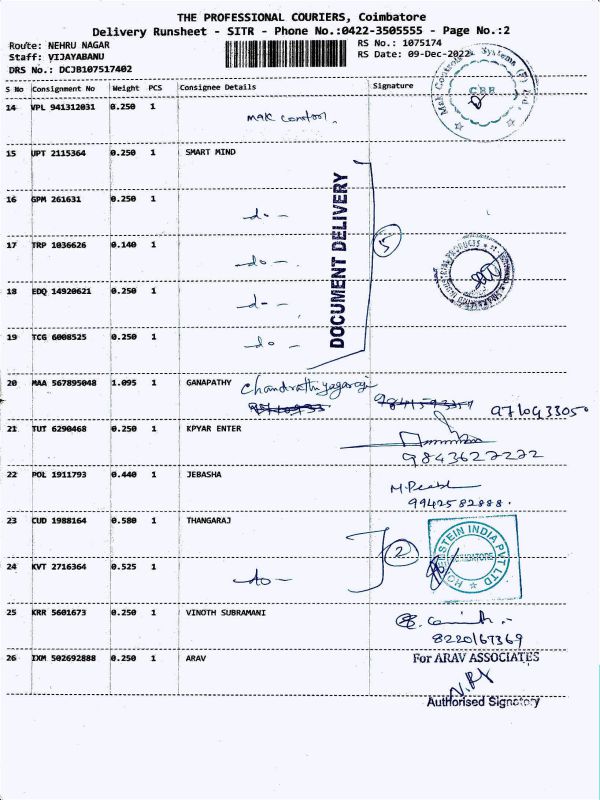 THE PROFESSIONAL COURIERS, Coimbatore
Delivery Runsheet - SITR - Phone No.:0422-3505555 - Page No.:2
Route: NEHRU NAGAR
RS No.: 1075174
Staff: VIJAYABANU
RS Date: 09-Dec-2022
DRS No.: DCJB107517402
S No Consignment No Weight PCS Consignee Details Signature
14 VPL 941312031 0.250 1 MAK control.
Mak Controls & Systems (P) Ltd.,
CBE
15 UPT 2115364 0.250 1 SMART MIND
DOCUMENT DELIVERY
16 GPM 261631 0.250 1 - do -
5
17 TRP 1036626 0.140 1 - do -
18 EDQ 14920621 0.250 1 - do -
19 TCG 6008525 0.250 1 - do -
20 MAA 567895048 1.095 1 GANAPATHY
9710433050
21 TUT 6290468 0.250 1 KPYAR ENTER
9843627222
22 POL 1911793 0.440 1 JEBASHA
9942582888.
23 CUD 1988164 0.580 1 THANGARAJ
STEIN INDIA PVT LTD
24 KVT 2716364 0.525 1 - do -
2
25 KRR 5601673 0.250 1 VINOTH SUBRAMANI
8220167369
26 IXM 502692888 0.250 1 ARAV
For ARAV ASSOCIATES
Authorised Signatory